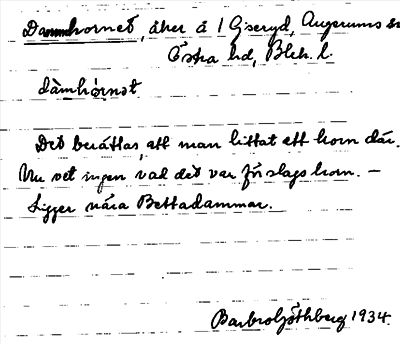 Dammhornet, åker å 1 Giseryd, Augerums sn
Östra hd, Blek. l.
dàmhórnət
Det berättas, att man hittat ett horn där.
Nu vet ingen vad det var för slags horn. —
Ligger nära Bettadammar.
Barbro Göthberg 1934.